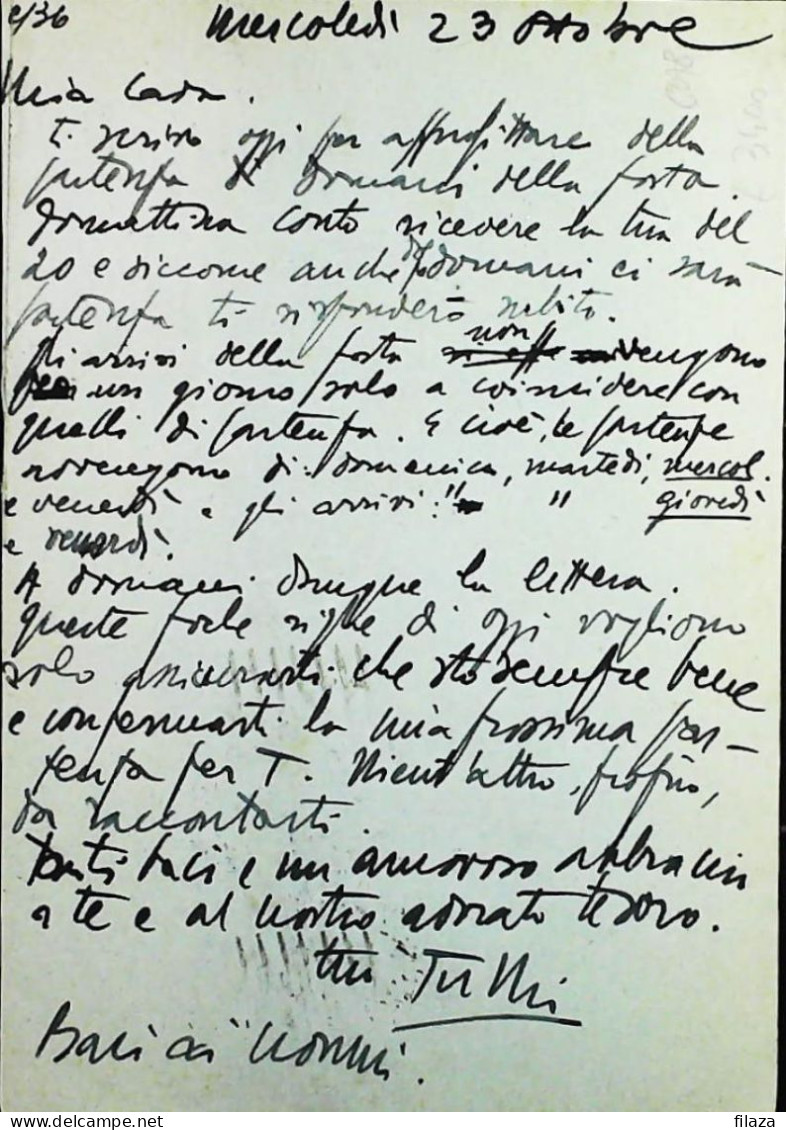 Mercoledì 23 Ottobre
Mia Cara.
ti scrivo oggi per approfittare della
partenza di domani della posta.
Domattina conto ricevere la tua del
20 e siccome anche domani ci sarà
partenza ti risponderò subito.
Gli arrivi della posta non vengono
un giorno solo a coincidere con
quelli di partenza. E cioè, le partenze
avvengono di: domenica, martedì, mercol.
e venerdì e gli arrivi: " " giovedì
e venerdì.
A domani dunque la lettera.
Queste poche righe di oggi vogliono
solo assicurarti che sto sempre bene
e confermarti la mia prossima par-
tenza per T. Nient'altro, proprio,
da raccontarti.
Tanti baci e un amoroso abbraccio
a te e al nostro adorato tesoro.
tuo Tullio
Baci ai nonni.
filaza
filaza